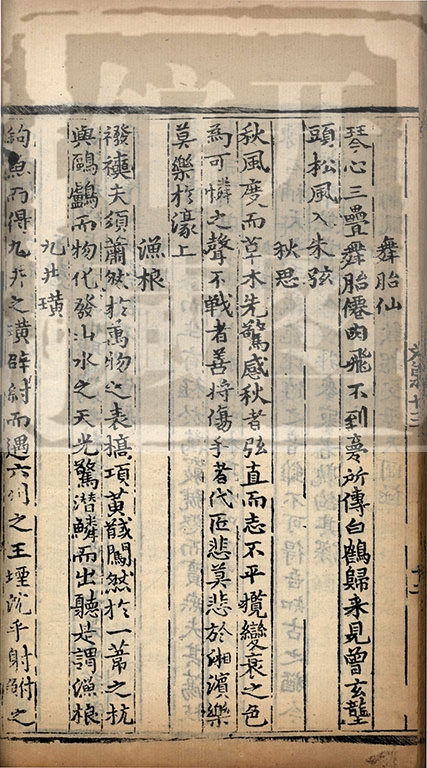 舞胎仙
琴心三疊舞胎僊肉飛不到夢所傳白鶴歸来見曾玄壟
頭松風入朱弦
秋思
秋風度而草木先驚感秋者弦直而志不平攬變衰之色
為可憐之聲不戰者善將傷手者代匠悲莫悲於湘濱樂
莫樂於濠上
漁根
襏襫夫須蕭然於萬物之表槁項黃馘闖然於一葦之杭
與鷗鸕而物化發山水之天光驚潜鱗而出聽是謂漁根
九井璜
鈎魚而得九井之璜辟紂而遇六州之王堙沉乎射鮒之